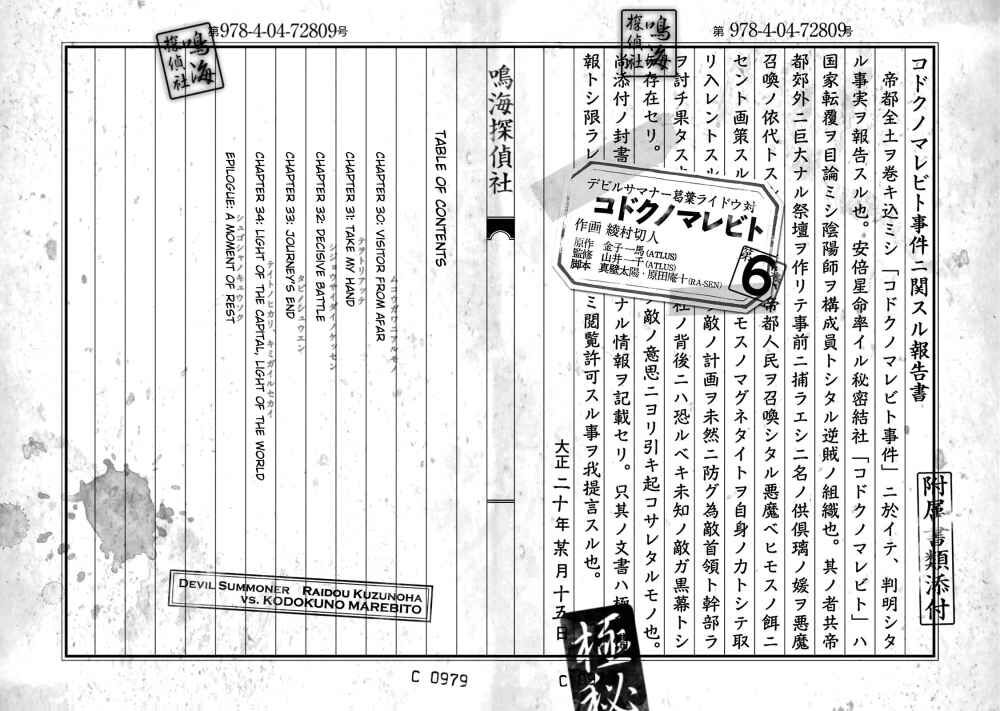 第978-4-04-72809号
第978-4-04-72809号
鳴海
探偵社
鳴海
探偵社
コドクノマレビト事件ニ関スル報告書
附属書類添付
帝都全土ヲ巻キ込ミシ「コドクノマレビト事件」ニ於イテ、判明シタ
ル事実ヲ報告スル也。安倍星命率イル秘密結社「コドクノマレビト」ハ
国家転覆ヲ目論ミシ陰陽師ヲ構成員トシタル逆賊ノ組織也。其ノ者共帝
都郊外ニ巨大ナル祭壇ヲ作リテ事前ニ捕ラエシ二名ノ供倶璃ノ媛ヲ悪魔
召喚ノ依代トス
帝都人民ヲ召喚シタル悪魔ベヒモスノ餌ニ
セント画策スル
モスノマグネタイトヲ自身ノ力トシテ取
リ入レントスル
敵ノ計画ヲ未然ニ防グ為敵首領ト幹部ラ
ヲ討チ果タス
社ノ背後ニハ恐ルベキ未知ノ敵ガ黒幕トシ
存在セリ。
敵ノ意思ニヨリ引キ起コサレタルモノ也。
尚添付ノ封書
ナル情報ヲ記載セリ。只其ノ文書ハ極
報トシ限ラレ
ミ閲覧許可スル事ヲ我提言スル也。
大正二十年某月十五日
デビルサマナー葛葉ライドウ対
コドクノマレビト
第6
作画 綾村切人
原作 金子一馬(ATLUS)
監修 山井一千(ATLUS)
脚本 真壁太陽・原田庵十(RA-SEN)
極秘
鳴海探偵社
TABLE OF CONTENTS
CHAPTER 30: VISITOR FROM AFAR
ムコウガワニアルモノ
CHAPTER 31: TAKE MY HAND
テヲトリアッテ
CHAPTER 32: DECISIVE BATTLE
シジョウサイダイノケッセン
CHAPTER 33: JOURNEY'S END
タビノシュウエン
CHAPTER 34: LIGHT OF THE CAPITAL, LIGHT OF THE WORLD
テイトノヒカリ、キミガイルセカイ
EPILOGUE: A MOMENT OF REST
シュゴシャノキュウソク
DEVIL SUMMONER RAIDOU KUZUNOHA
VS. KODOKUNO MAREBITO
C 0979